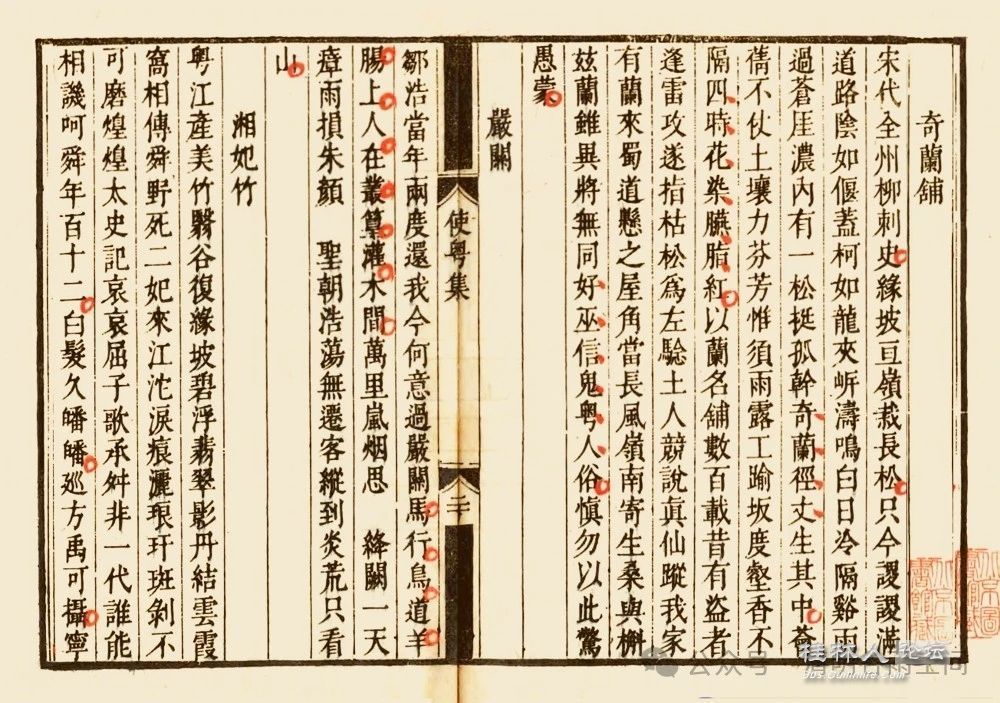 奇蘭舖
宋代全州柳刺史緣坡亘嶺栽長松只今謖謖滿
道路陰如偃蓋柯如龍夾岍濤鳴白日冷隔谿雨
過蒼厓濃內有一松挺孤幹奇蘭徑丈生其中莟
蒨不仗土壤力芬芳惟須雨露工踰坂度壑香不
隔四時花染臙脂紅以蘭名舖數百載昔有盜者
逢雷攻遂指枯松爲左驗土人競說眞仙蹤我家
有蘭來蜀道懸之屋角當長風嶺南寄生桑與槲
茲蘭雖異將無同好巫信鬼粤人俗愼勿以此驚
愚蒙
嚴關
鄒浩當年兩度還我今何意過嚴關馬行鳥道羊
腸上人在叢篁灌木間萬里嵐烟思 絳闕一天
瘴雨損朱顏 聖朝浩蕩無遷客縱到炎荒只看
山
湘妃竹
粤江產美竹翳谷復緣坡碧浮翡翠影丹結雲霞
窩相傳舜野死二妃來江沱淚痕灑琅玕斑剝不
可磨煌煌太史記哀哀屈子歌承舛非一代誰能
相譏呵舜年百十二白髮久皤皤巡方禹可攝寧
使粤集
二十
桂林人论坛
bbs.guilinlife.com
公众号